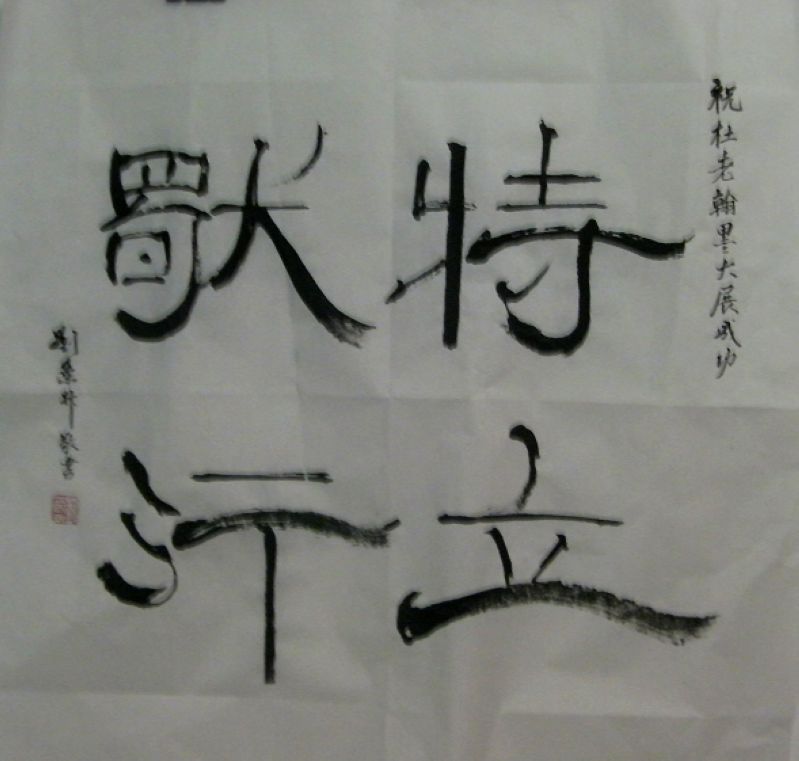 祝杜老翰墨大展成功
特立
獨行
劉敬書